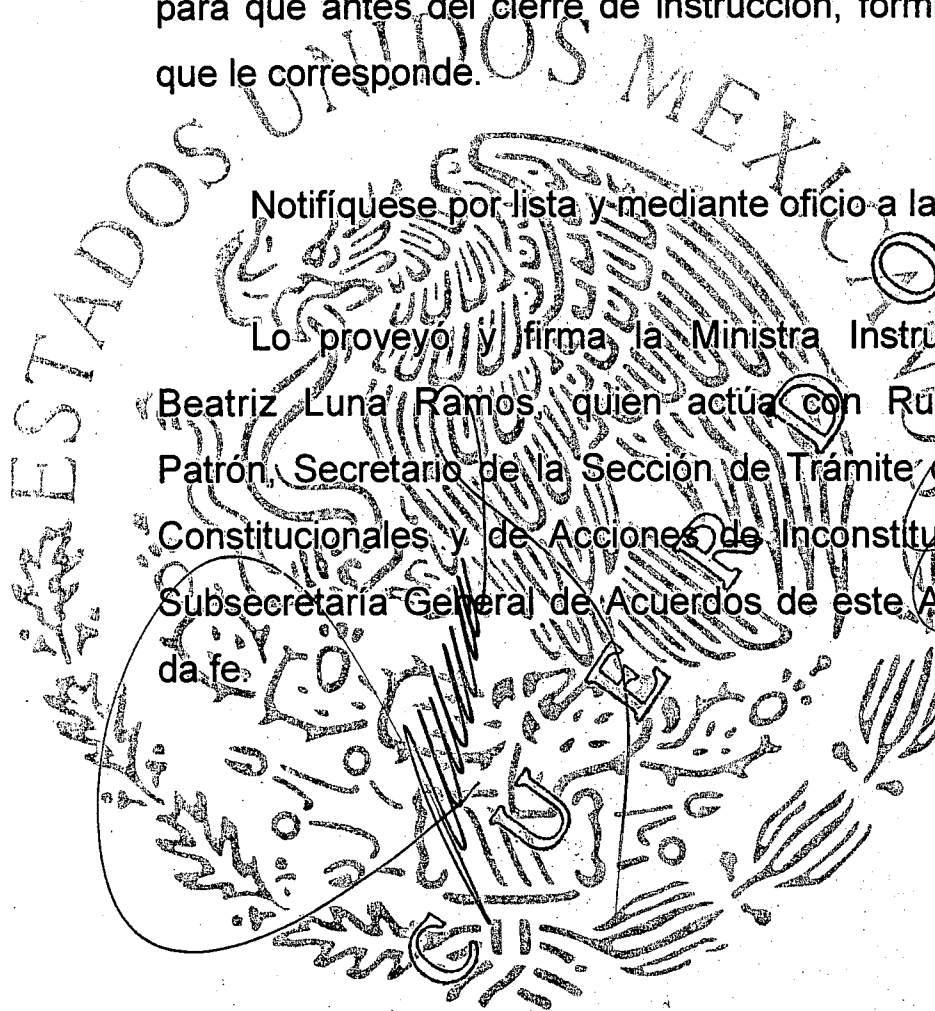 para que antes del cierre de instrucción, form
que le corresponde.
ESTADOS UNIDOS MEXICANOS
Notifíquese por lista y mediante oficio a la
Lo proveyó y firma la Ministra Instru
Beatriz Luna Ramos, quien actúa con Ru
Patrón, Secretario de la Sección de Trámite
Constitucionales y de Acciones de Inconstitu
Subsecretaría General de Acuerdos de este A
da fe.
C U E R D O